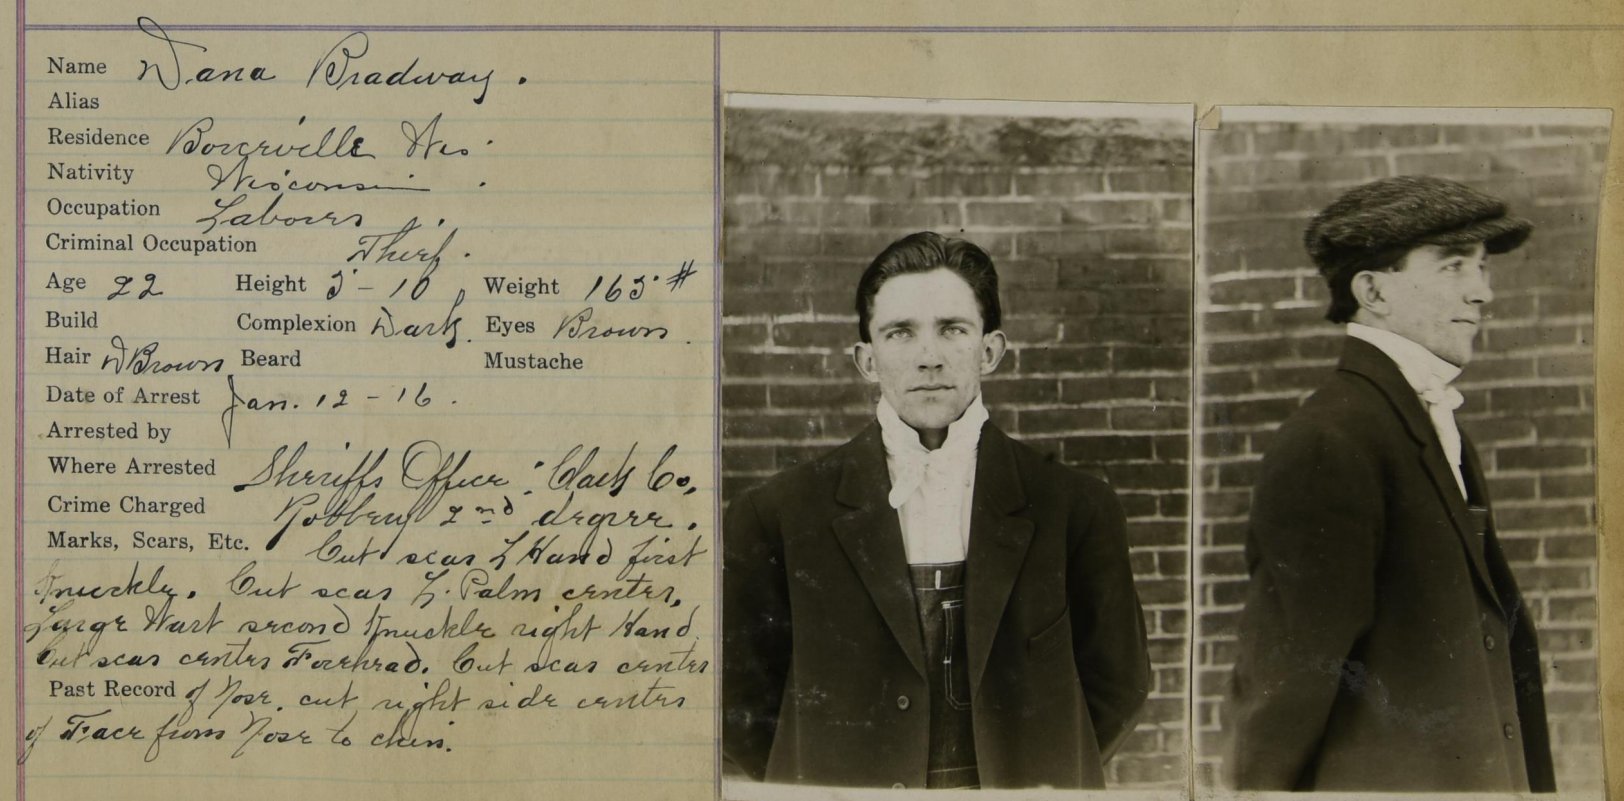 Name Dana Bradway.
Alias
Residence Boicerville Wis.
Nativity Wisconsin.
Occupation Laborer.
Criminal Occupation Thief.
Age 22 Height 5-10 Weight 165 #
Build Complexion Dark. Eyes Brown.
Hair D Brown Beard Mustache
Date of Arrest Jan. 12-16.
Arrested by
Where Arrested Sheriffs Office Clark Co,
Crime Charged Robbery 2nd degree.
Marks, Scars, Etc. Cut scar L Hand first
Knuckle. Cut scar L. Palm center,
Large Wart second Knuckle right Hand.
Cut scar center Forehead. Cut scar center
Past Record of Nose. cut right side center
of Face from Nose to chin.